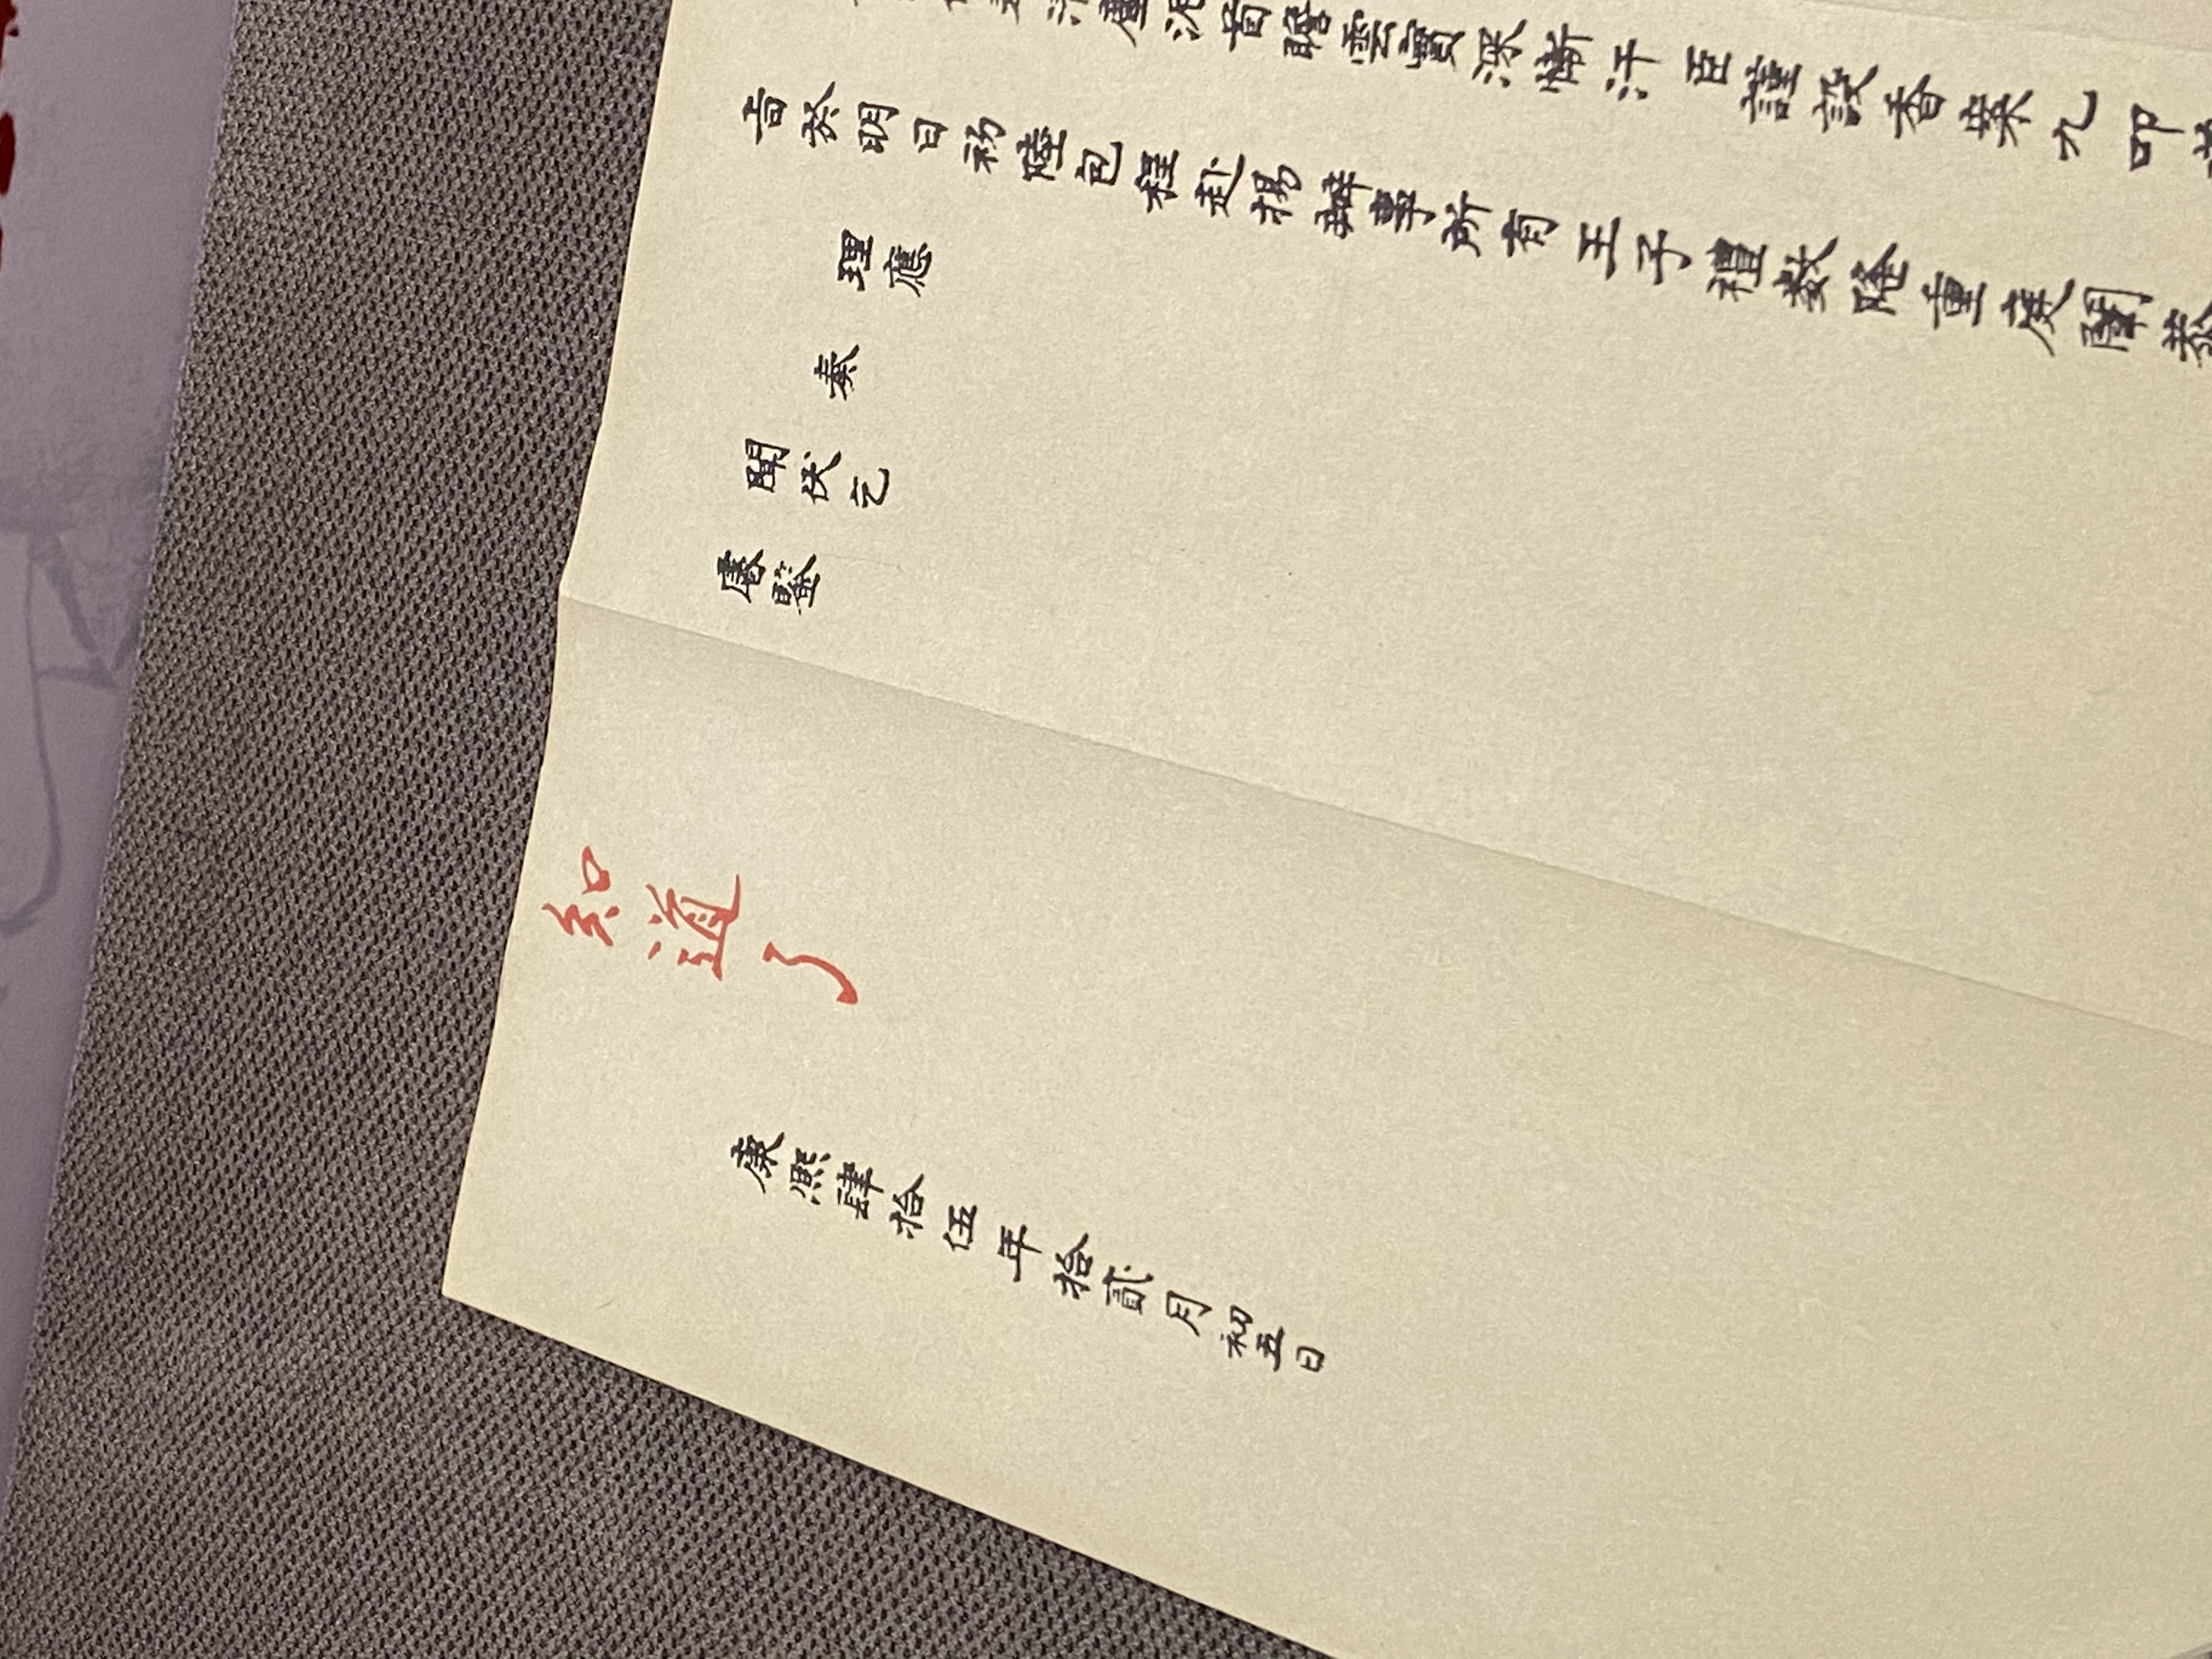 塵泥首瞻雲實深慚汗臣謹設香案九叩
旨於明日初陸包程赴揚辦事所有王子禮數隆重
理應
奏
聞伏乞
睿鑒
知道了
康熙肆拾伍年拾貳月初五日